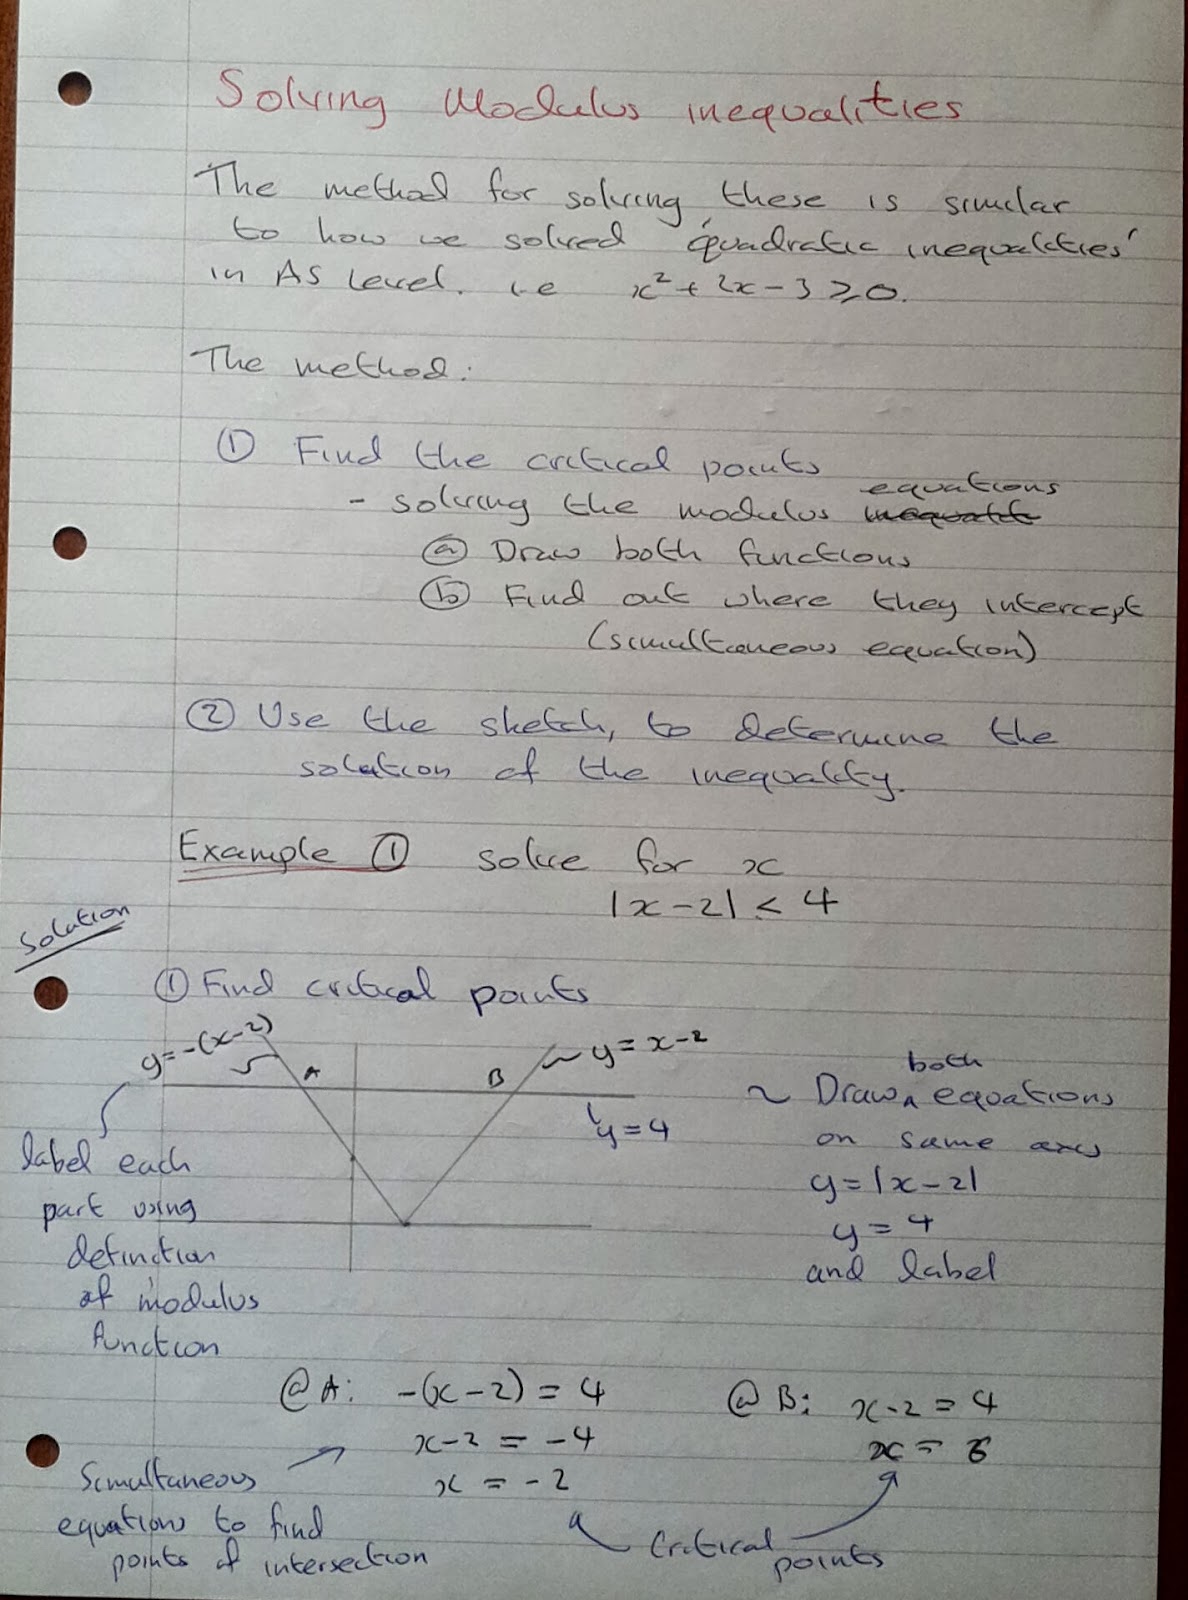 Solving Modulus inequalities
The method for solving these is similar
to how we solved 'quadratic inequalities'
in AS level. i.e x² + 2x - 3 ≥ 0.
The method:
① Find the critical points
- solving the modulus equations
ⓐ Draw both functions
ⓑ Find out where they intercept
(simultaneous equation)
② Use the sketch, to determine the
solution of the inequality.
Example ① solve for x
|x-2| < 4
Solution
① Find critical points
y=-(x-2)
A
B
y = x-2
y=4
label each
part using
definition
of modulus
function
~ Draw both equations
on same axes
y=|x-2|
y = 4
and label
@ A: -(x-2) = 4
x-2 = -4
x = -2
@ B: x-2 = 4
x = 6
Simultaneous
equations to find
points of intersection
Critical
points